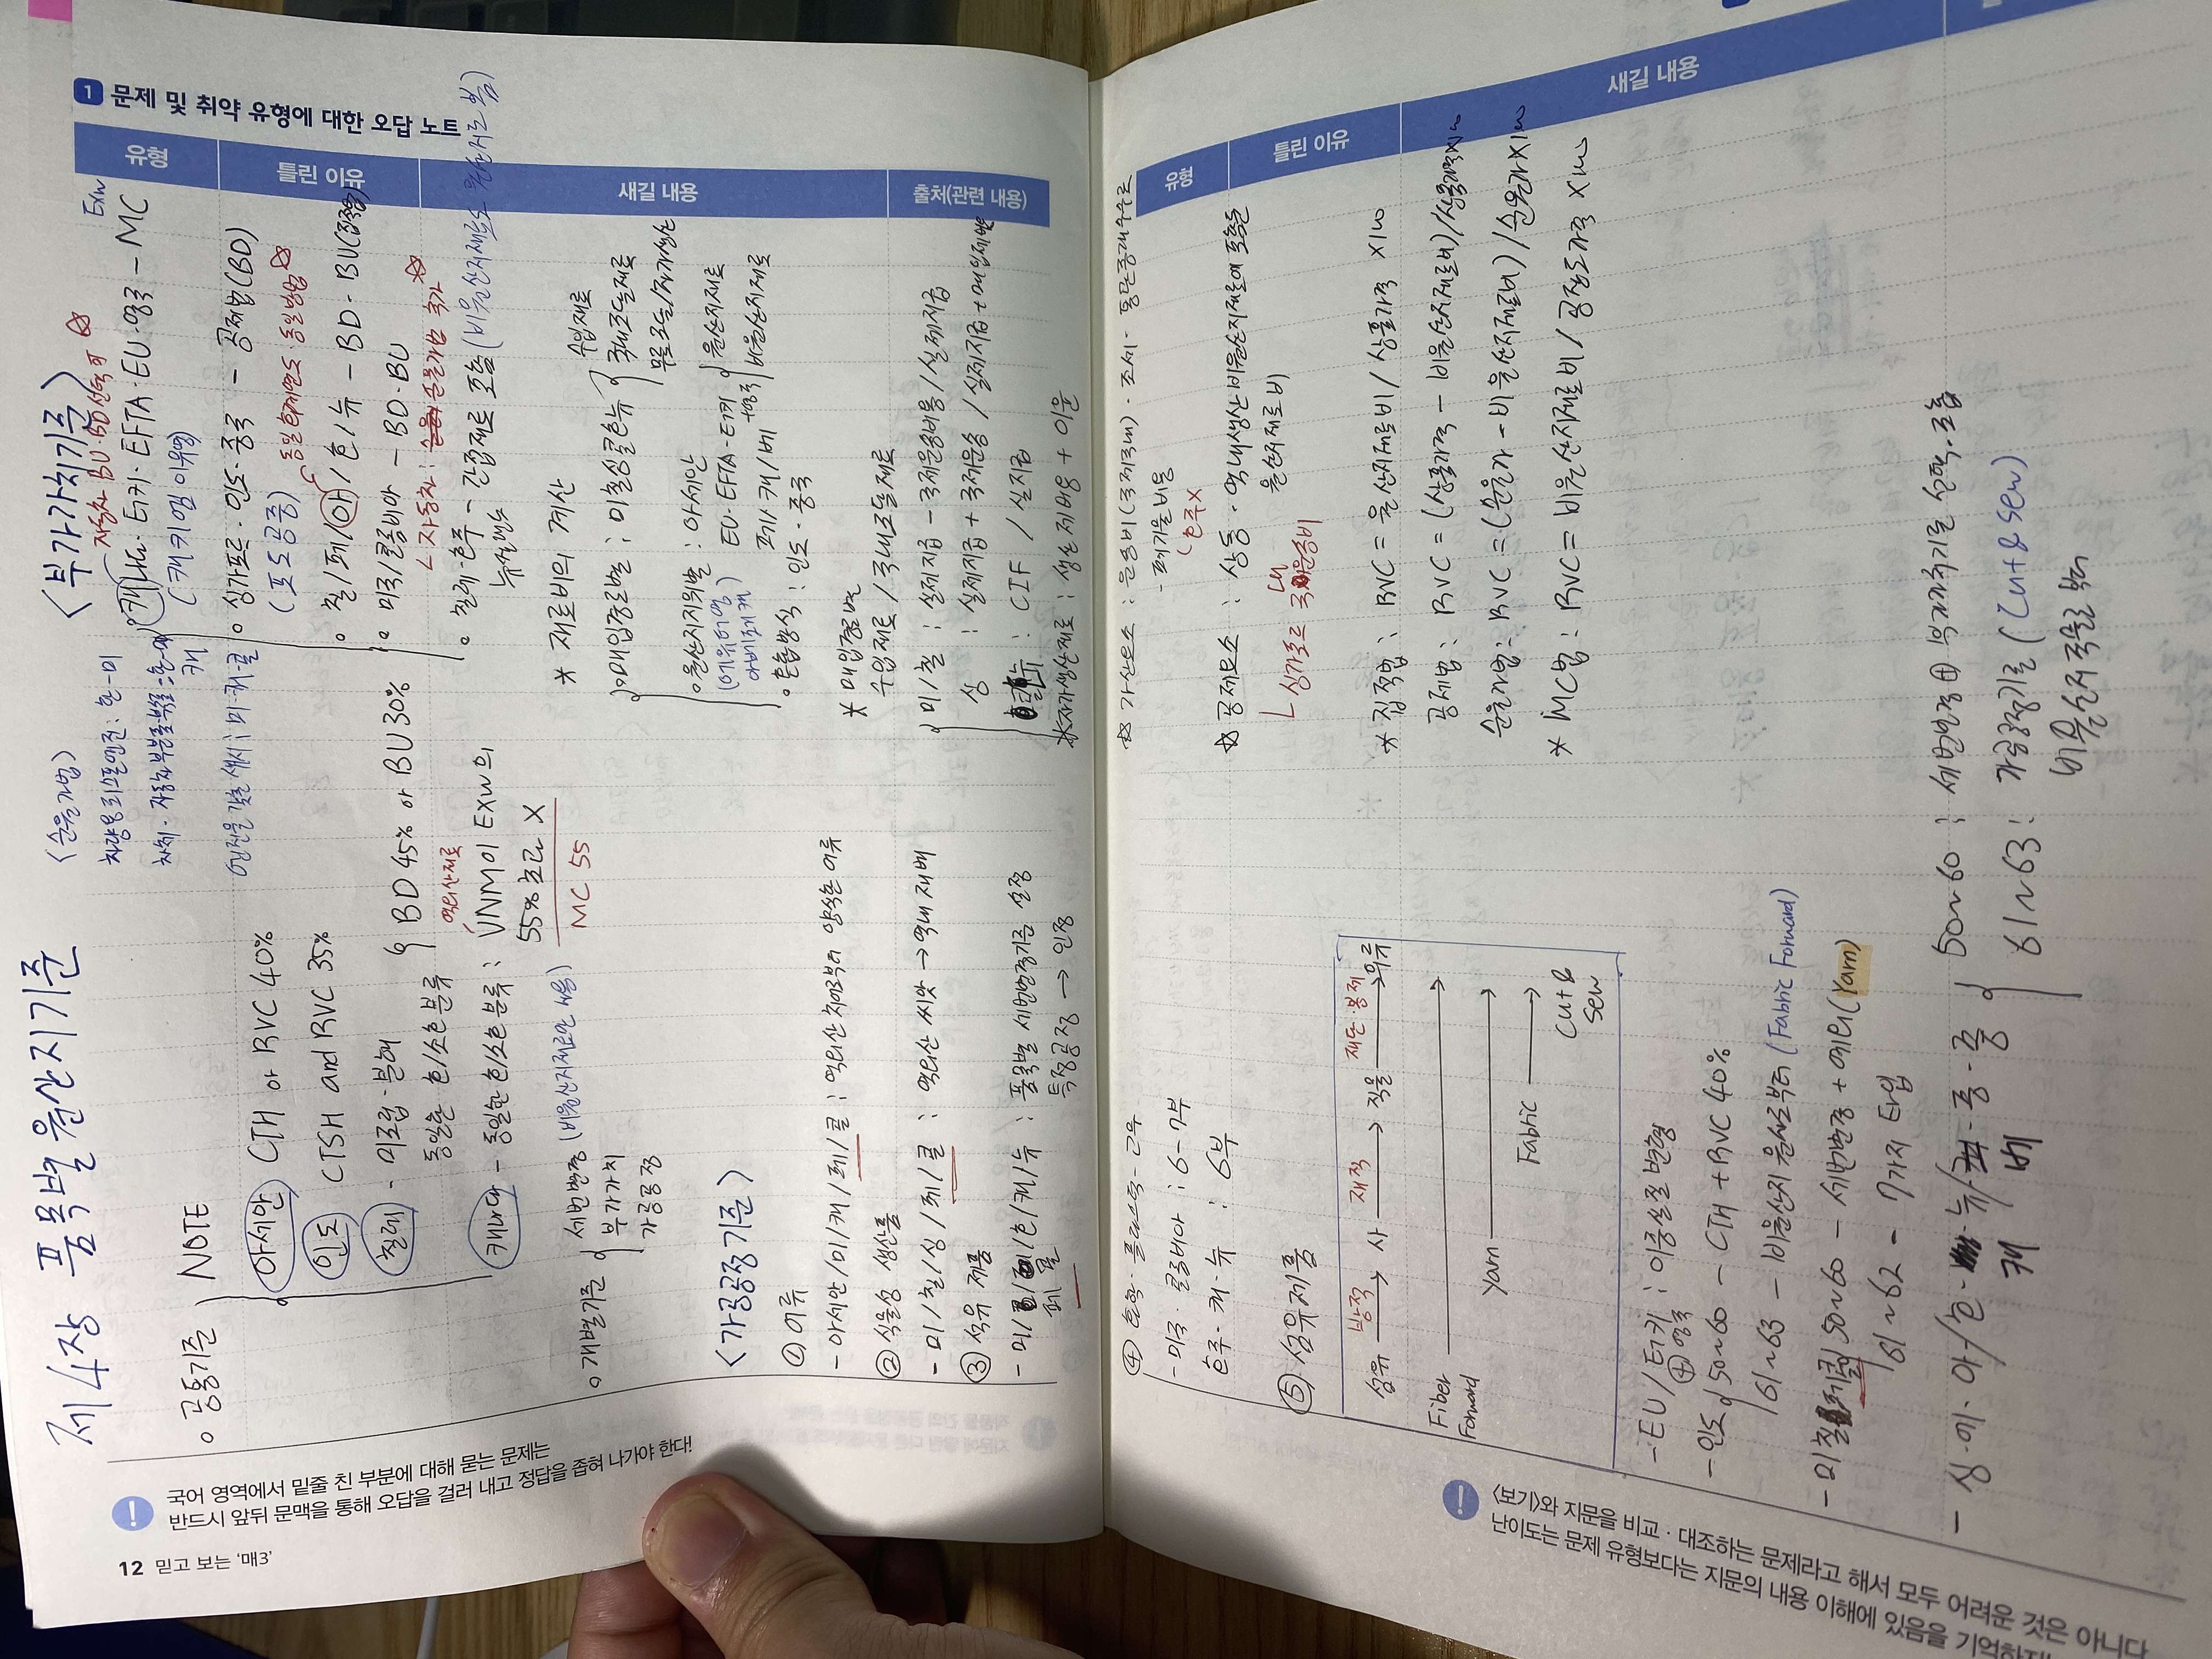 1 문제 및 취약 유형에 대한 오답 노트
유형
틀린 이유
새길 내용
출처(관련 내용)
제4장 품목별 원산지기준
◦ 공통기준
NOTE
아세안 CTH or RVC 40%
인도 CTSH and RVC 35%
칠레 - 미조립·분해
동일한 호/소호 분류
BD 45% or BU 30%
캐나다 - 동일한 호/소호 분류 :
역외산재료
VNM이 EXW의
55% 초과 X
MC 55
◦ 개별기준
세번변경 (비원산지재료만 적용)
부가가치
가공공정
<가공공정기준>
① 어류
- 아세안/미/캐/페/콜 : 역외산 치어로부터 양식한 어류
② 식물성 생산품
- 미/칠/싱/페/콜 : 역외산 씨앗 → 역내 재배
③ 석유 제품
: 품목별 세번변경기준 설정
특정공정 → 인정
<순원가법>
<부가가치기준>
자동차 BU·BD 선택 ☆
캐나다·터키·EFTA·EU·영국 - MC
EXW
(캐키엠이유영)
◦ 싱가포르·인도·중국 - 공제법(BD)
(포도공중)
◦ 칠/페/아/호/뉴 - BD·BU(집적법)
◦ 미국/콜롬비아 - BD·BU
◦ 칠레·호주·뉴질랜드 - 간접재료 포함 (비원산지재료도 원산지로 봄)
* 재료비의 계산
◦ 매입경로별 : 미칠싱콜호뉴
수입재료
국내조달재료
무료조달/자가생산
◦ 원산지지위별 : 아세안
EU·EFTA·터키
+영국
페/캐/베
원산지재료
비원산지재료
◦ 혼합방식 : 인도·중국
* 매입경로별
수입재료 / 국내조달재료
미/칠 : 실제지급 - 국제운송비용 / 실제지급
싱 : 실제지급 + 국제운송 / 실제지급 + 매입제비용
: CIF / 실지급
*자가생산재료 : 생산제비용 + 이윤
국어 영역에서 밑줄 친 부분에 대해 묻는 문제는
반드시 앞뒤 문맥을 통해 오답을 걸러 내고 정답을 좁혀 나가야 한다!
12 믿고 보는 '매3'
유형
틀린 이유
새길 내용
④ 화학·플라스틱·고무
- 미국·콜롬비아 : 6~7부
호주·캐·뉴 : 6부
⑤ 섬유제품
섬유 방적 → 사 제직 → 직물 재단·봉제 → 의류
Fiber
Forward
Yarn
Fabric
Cut &
Sew
- EU/터키 : 이중실질변형
⊕영국
- 인도 50~60 - CTH + RVC 40%
61~63 - 비원산지 원사로부터 (Fabric Forward)
50~60 - 세번변경 + 예외(Yarn)
61~62 - 7가지 타입
50~60 : 세번변경 ⊕ 부가가치기준 선택·조합
61~63 : 가공공정기준 (Cut & Sew)
비원산지 직물 부터
- 폐기물비용
(호주X)
☆ 공제요소 : 상동·역내생산 비원산지재료에 포함된
원산지재료비
└ 싱가포르 국내운송비
* 집적법 : RVC = 원산지재료비 / 상품가격 X100
공제법 : RVC = (상품가격 - 비원산지재료비)/상품가격X100
순원가법 : RVC = (순원가 - 비원산지재료비) / 순원가X100
* MC법 : RVC = 비원산지재료비 / 공장도가격 X100
〈보기〉와 지문을 비교·대조하는 문제라고 해서 모두 어려운 것은 아니다
난이도는 문제 유형보다는 지문의 내용 이해에 있음을 기억하자!